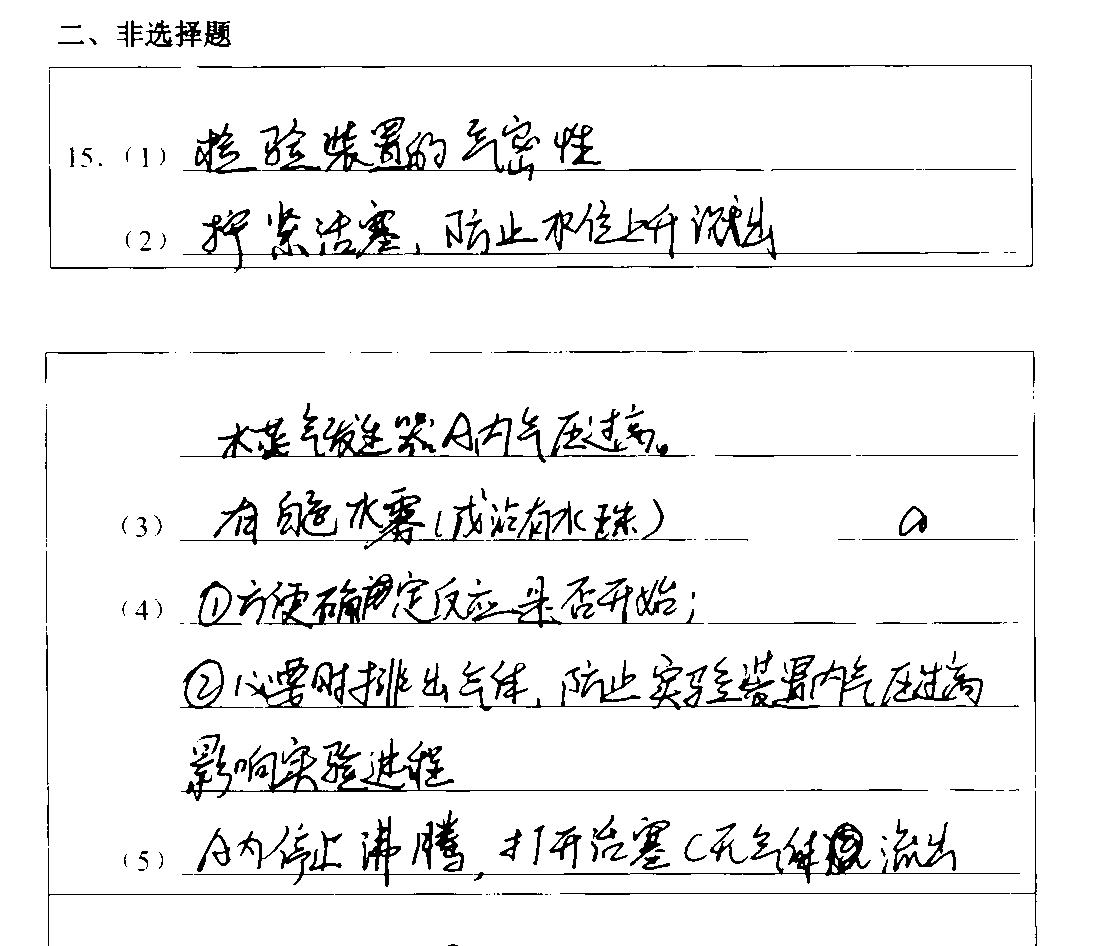 二、非选择题
15.（1）检验装置的气密性
（2）拧紧活塞，防止水位上升流出
水蒸气发生器A内气压过高。
（3）有白色水雾(或沾有水珠) a
（4）①方便确定反应是否开始；
②必要时排出气体，防止实验装置内气压过高
影响实验进程
（5）A内停止沸腾，打开活塞C无气体流出